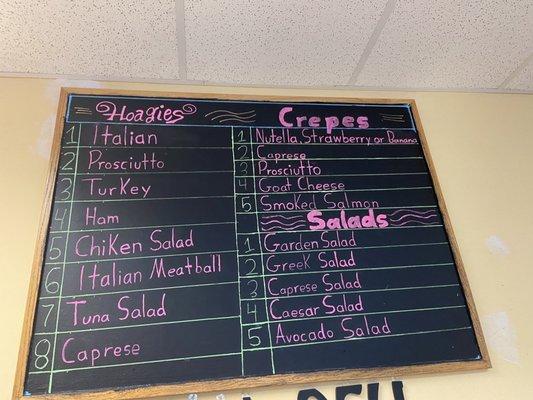 Hoagies
1 Italian
2 Prosciutto
3 Turkey
4 Ham
5 Chiken Salad
6 Italian Meatball
7 Tuna Salad
8 Caprese
Crepes
1 Nutella, Strawberry or Banana
2 Caprese
3 Prosciutto
4 Goat Cheese
5 Smoked Salmon
Salads
1 Garden Salad
2 Greek Salad
3 Caprese Salad
4 Caesar Salad
5 Avocado Salad